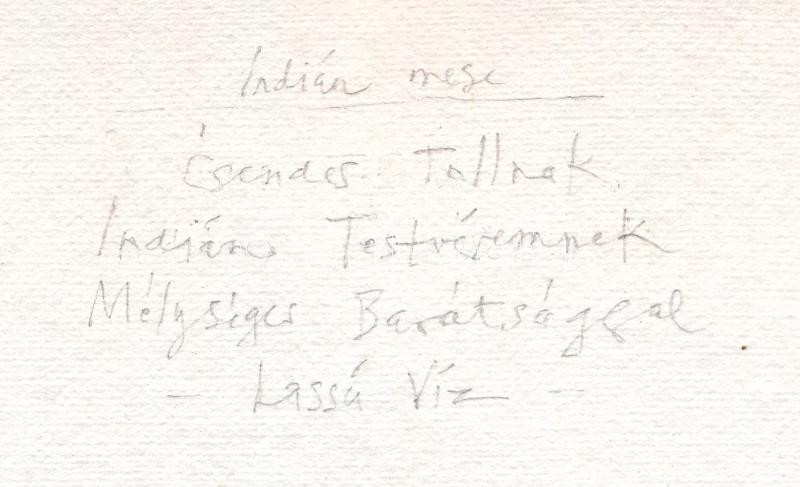 Indián mese
Csendes Tollnak
Indián Testvéremnek
Mélységes Barátsággal
- Lassú Víz -